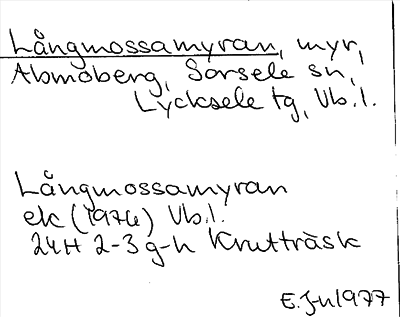 Långmossamyran, myr,
Abmoberg, Sorsele sn,
Lycksele tg, Vb.l.
Långmossamyran
ek (1974) Vb.l.
24H 2-3 g-h Krutträsk
E. Jn 1977